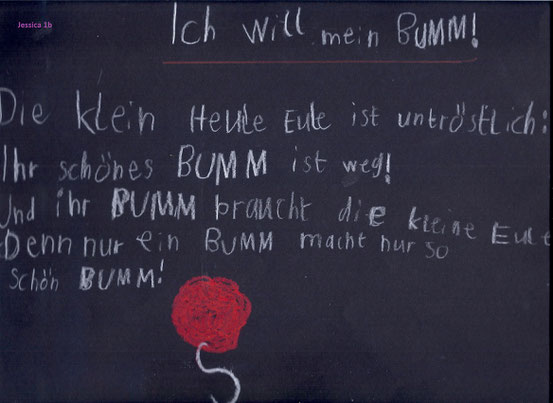 Jessica 1b
Ich will mein BUMM!
Die klein Heule Eule ist untröstlich:
Ihr schönes BUMM ist weg!
Und ihr BUMM braucht die kleine Eule
Denn nur ein BUMM macht nur so
schön BUMM!